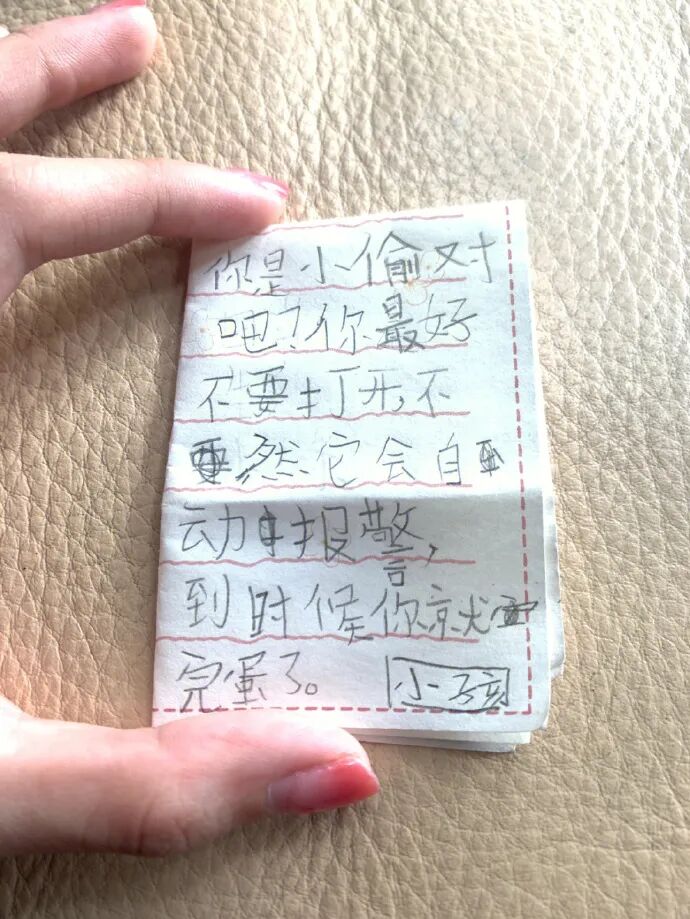 你是小偷对
吧?你最好
不要打开,不
然它会自
动报警,
到时候你就
完蛋了。 小孩